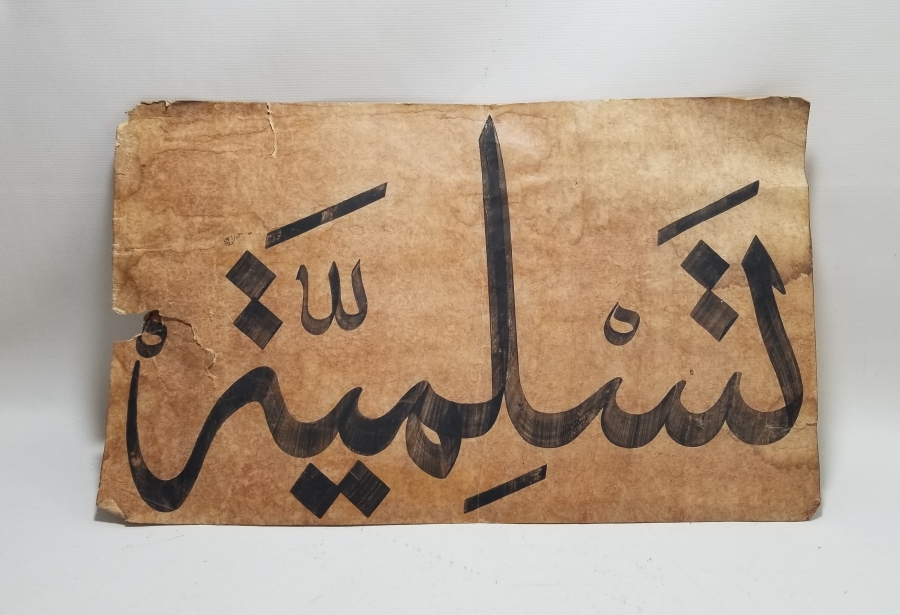 تَسْلِمِيَّةْ